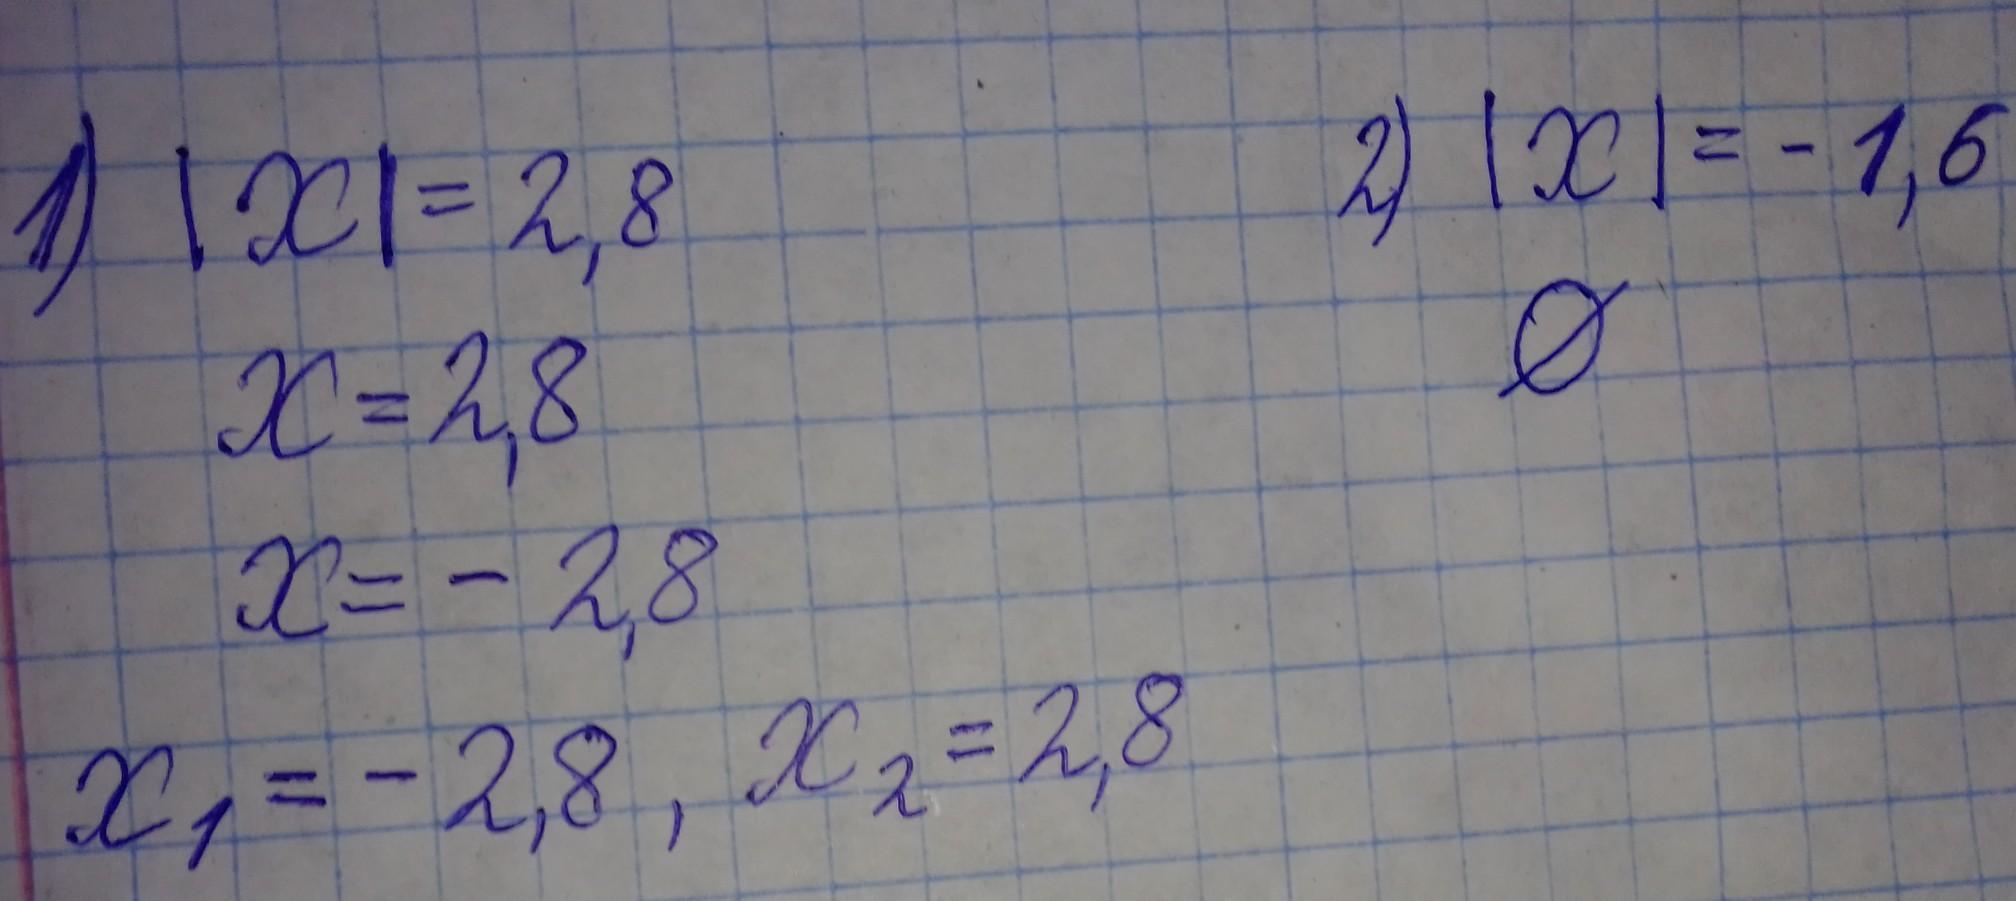 1) |x| = 2,8
x = 2,8
x = - 2,8
x₁ = - 2,8 , x₂ = 2,8
2) |x| = - 1,6
∅